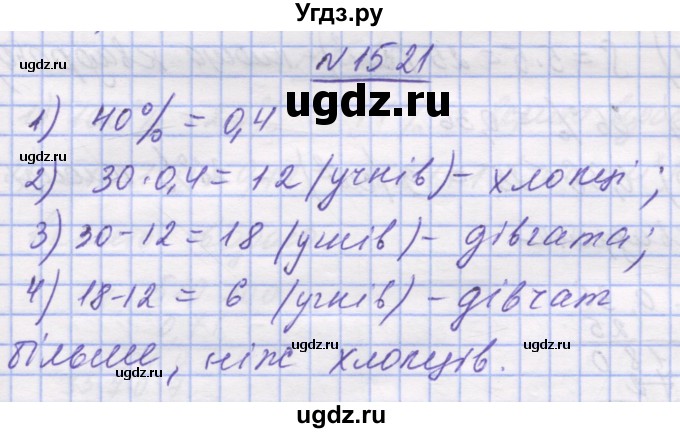 Угдз.ру
№1521
ugdz.ru ugdz.ru ugdz.ru
1) 40% = 0,4
2) 30·0,4 = 12 (учнів) - хлопці;
ugdz.ru ugdz.ru
3) 30-12 = 18 (учнів) - дівчата;
ugdz.ru ugdz.ru
4) 18-12 = 6 (учнів) - дівчат
більше, ніж хлопців.
ugdz.ru ugdz.ru
ugdz.ru